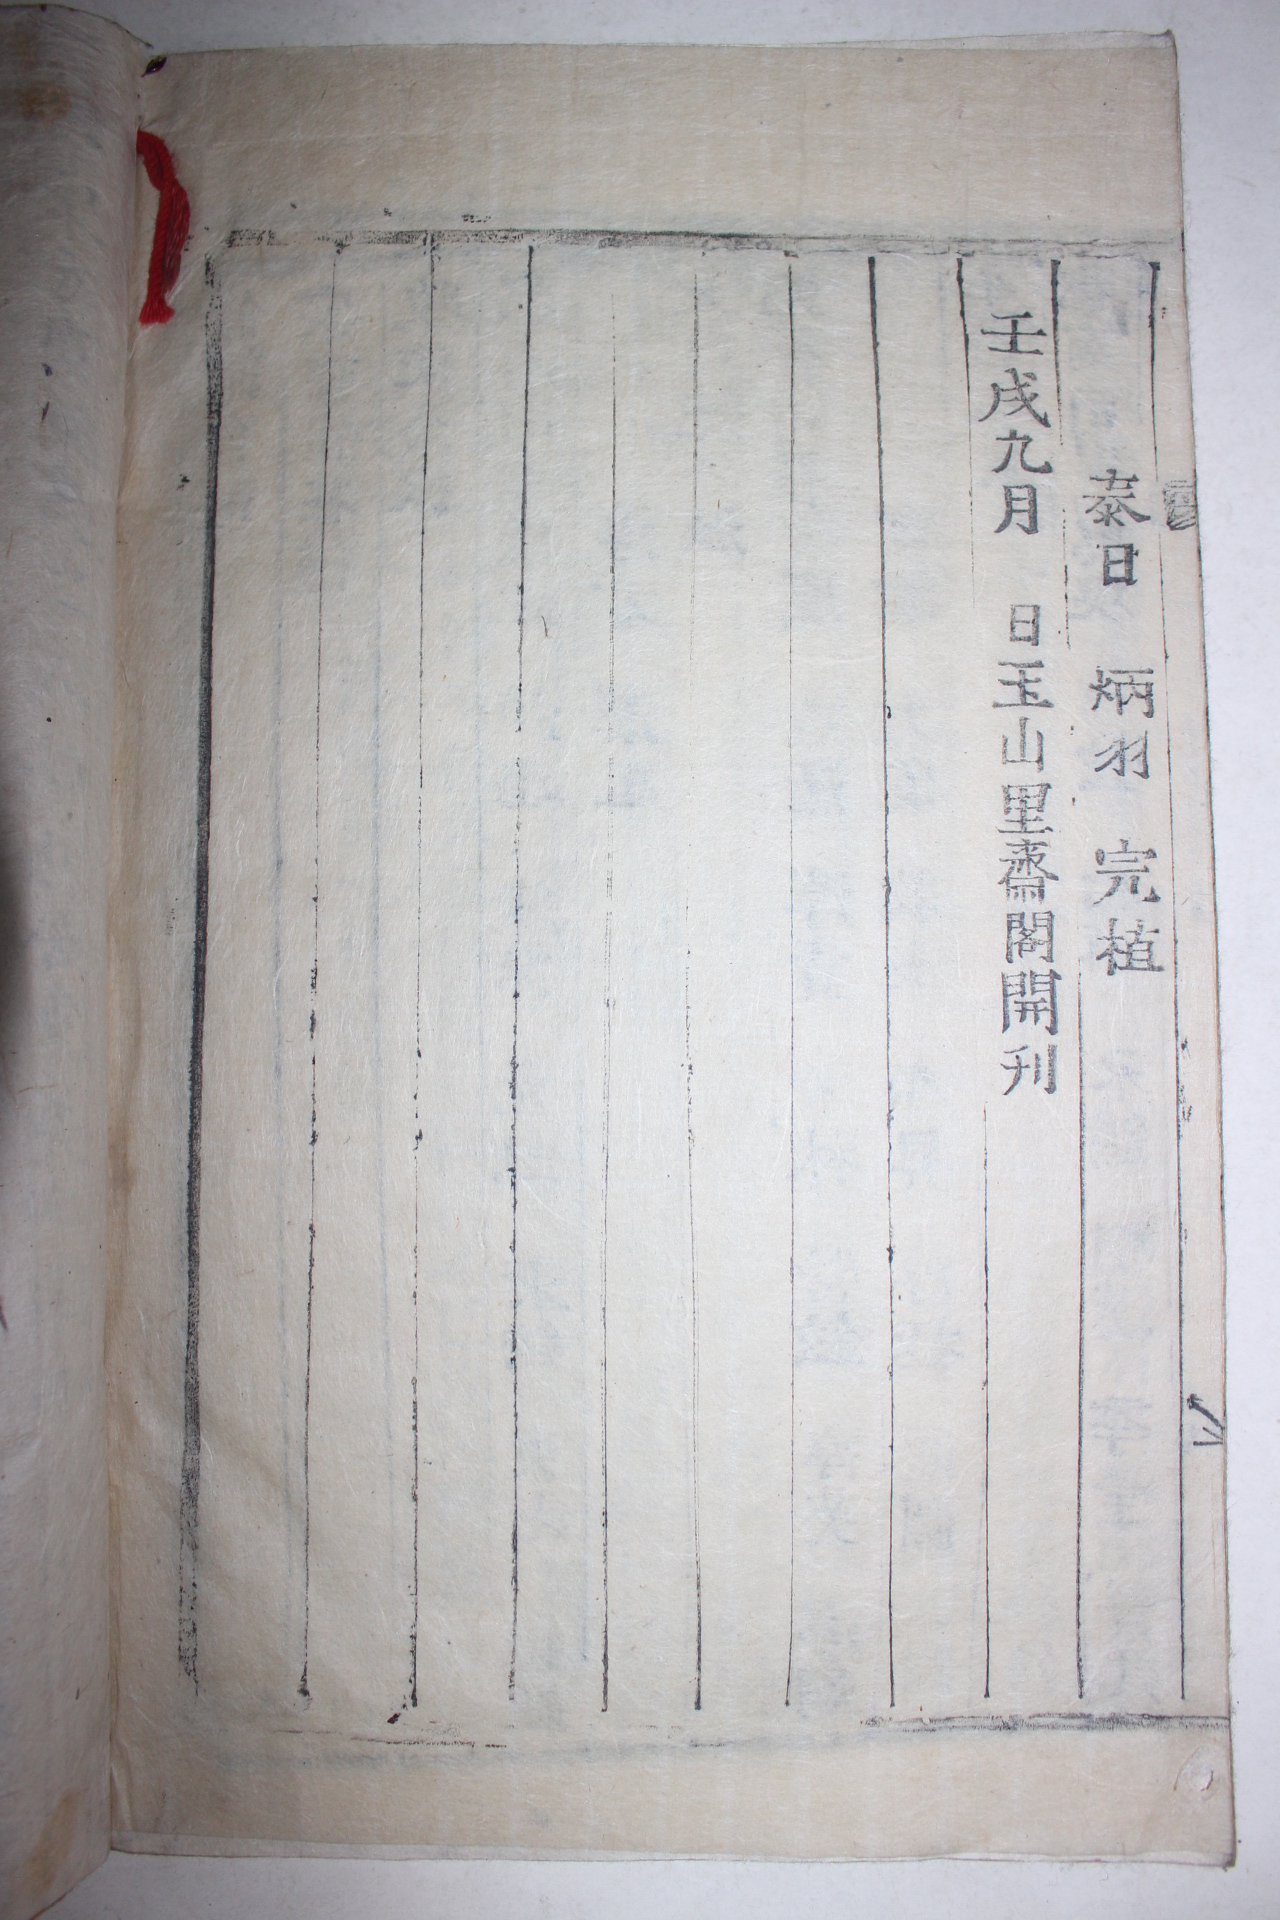 泰日 炳羽 完植
壬戌九月 日玉山里齋閣開刊